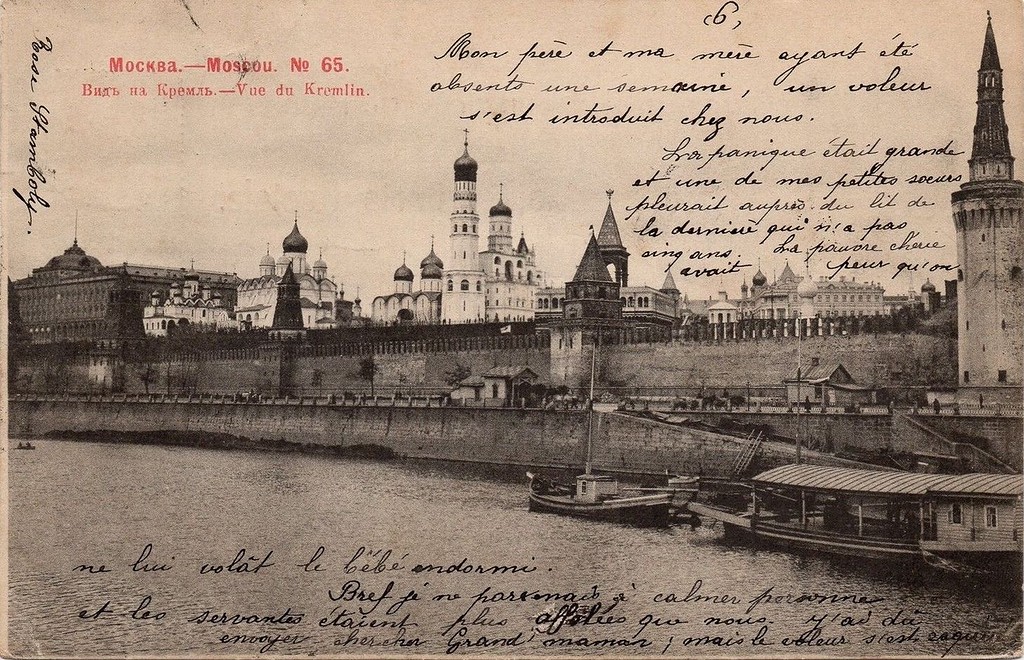 6,
Москва.—Moscou. № 65.
Видъ на Кремль.—Vue du Kremlin.
Rose Stamboly.
Mon père et ma mère ayant été
absents une semaine, un voleur
s'est introduit chez nous.
La panique était grande
et une de mes petites soeurs
pleurait auprès du lit de
la dernière qui n'a pas
cinq ans. La pauvre chérie
avait peur qu'on
ne lui volât le bébé endormi.
Bref je ne parvenais à calmer personne
et les servantes étaient plus affolées que nous. J'ai dû
envoyer chercher Grand'maman ; mais le voleur s'est